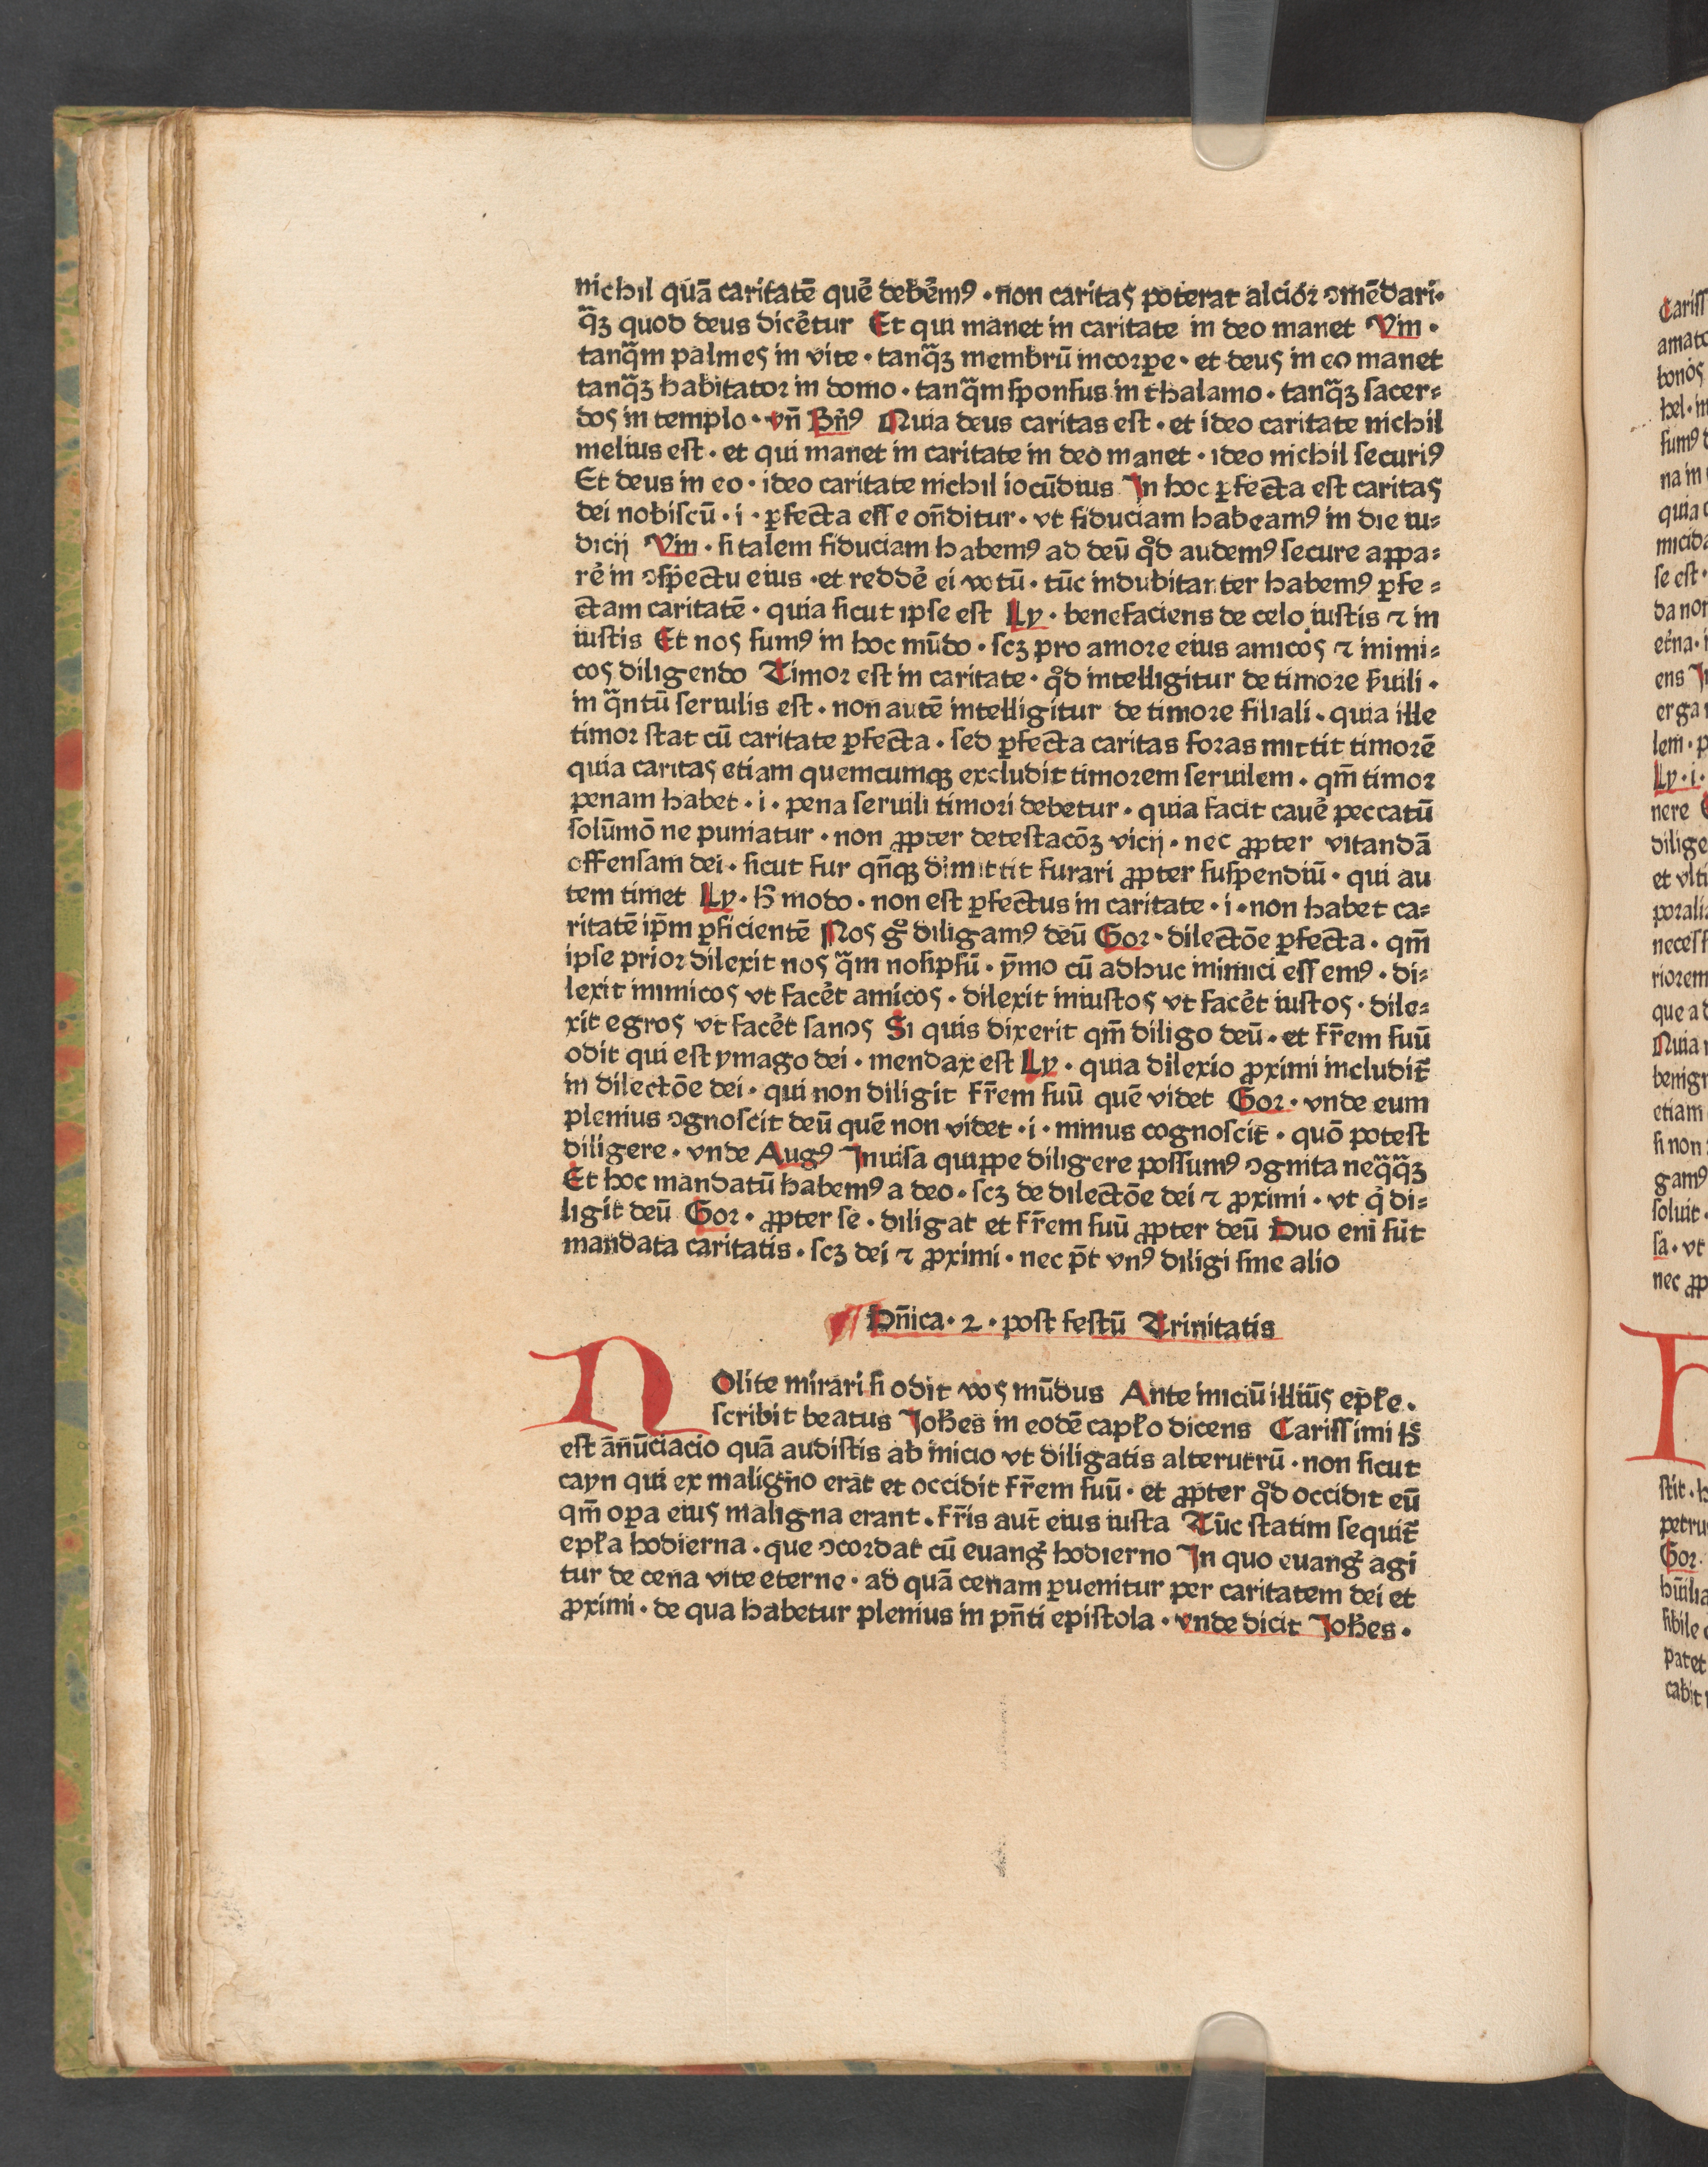 nichil quā caritatē quē debēmꝰ · non caritas poterat alciꝯ ꝯmēdari·
q̄ꝫ quod deus dicēt̉ur Et qui manet in caritate in deo manet Vin ·
tanq̄m palmes in vite · tanq̄ꝫ membrū incorꝑe · et deus in eo manet
tanq̄ꝫ habitator in domo · tanq̄m ſponſus in thalamo · tanq̄ꝫ ſacer⸗
dos in templo · vn̄ Bn̄ꝰ Quia deus caritas eſt · et ideo caritate nichil
melius eſt · et qui manet in caritate in deo manet · ideo nichil ſecuriꝰ
Et deus in eo · ideo caritate nichil iocūdius In hoc ꝑfecta eſt caritas
dei nobiſcū · i · ꝑfecta eſſe on̄ditur · vt fiduciam habeamꝰ in die iu⸗
dicij Vin · ſi talem fiduciam habemꝰ ad deū qd̊ audemꝰ ſecure appa⸗
rē in ꝯſpectu eius · et reddē ei votū · tūc indubitanter habemꝰ ꝑfe⸗
ctam caritatē · quia ſicut ipſe eſt Ly · benefaciens de celo iuſtis ⁊ in
iuſtis Et nos ſumꝰ in hoc mūdo · ſcꝫ pro amore eius amicos ⁊ inimi⸗
cos diligendo Timor eſt in caritate · qd̊ intelligitur de timore ẜuili ·
in q̄ntū ſeruilis eſt · non autē intelligitur de timore filiali · quia ille
timor ſtat cū caritate ꝑfecta · ſed ꝑfecta caritas foras mittit timorē
quia caritas etiam quemcumqꝫ excludit timorem ſeruilem · qm̄ timor
penam habet · i · pena ſeruili timori debetur · quia facit cauē peccatū
ſolūmō ne puniatur · non ꝓpter deteſtacōꝫ vicij · nec ꝓpter vitandā
offenſam dei · ſicut fur qn̄qꝫ dimittit furari ꝓpter ſuſpendiū · qui au
tem timet Ly · h̄ modo · non eſt ꝑfectus in caritate · i · non habet ca⸗
ritatē ip̄m ꝑficientē Nos gͦ diligamꝰ deū Gor · dilectōe ꝑfecta · qm̄
ipſe prior dilexit nos q̄m noſipſū · ȳmo cū adhuc inimici eſſemꝰ · di⸗
lexit inimicos vt facēt amicos · dilexit iniuſtos vt facēt iuſtos · dile⸗
xit egros vt facēt ſanos Si quis dixerit qm̄ diligo deū · et fr̄em ſuū
odit qui eſt ymago dei · mendax eſt Ly · quia dilexio ꝓximi includit̄
in dilectōe dei · qui non diligit fr̄em ſuū quē videt Gor · vnde eum
plenius ꝯgnoſcit deū quē non videt · i · minus cognoſcit · quō poteſt
diligere · vnde Augꝰ Inuiſa quippe diligere poſſumꝰ ꝯgnita neq̄q̄ꝫ
Et hoc mandatū habemꝰ a deo · ſcꝫ de dilectōe dei ⁊ ꝓximi · vt q̇ di⸗
ligit deū Gor · ꝓpter ſe · diligat et fr̄em ſuū ꝓpter deū Duo eni ſūt
mandata caritatis · ſcꝫ dei ⁊ ꝓximi · nec p̄t vnꝰ diligi ſine alio
Dn̄ica · 2 · poſt feſtū Trinitatis
Nolite mirari ſi odit vos mūdus Ante iniciū illiūs epłe ·
ſcribit beatus Joh̄es in eodē capło dicens Cariſſimi h̄
eſt an̄ūciacio quā audiſtis ab inicio vt diligatis alterutrū · non ſicut
cayn qui ex maligno erat et occidit fr̄em ſuū · et ꝓpter qd̊ occidit eū
qm̄ oꝑa eius maligna erant · fr̄is aut̄ eius iuſta Tūc ſtatim ſequit̄
epła hodierna · que ꝯcordat cū euang̃ hodierno In quo euang̃ agi
tur de cena vite eterne · ad quā cenam ꝑuenitur per caritatem dei et
ꝓximi · de qua habetur plenius in pn̄ti epiſtola · vnde dicit Joh̄es ·